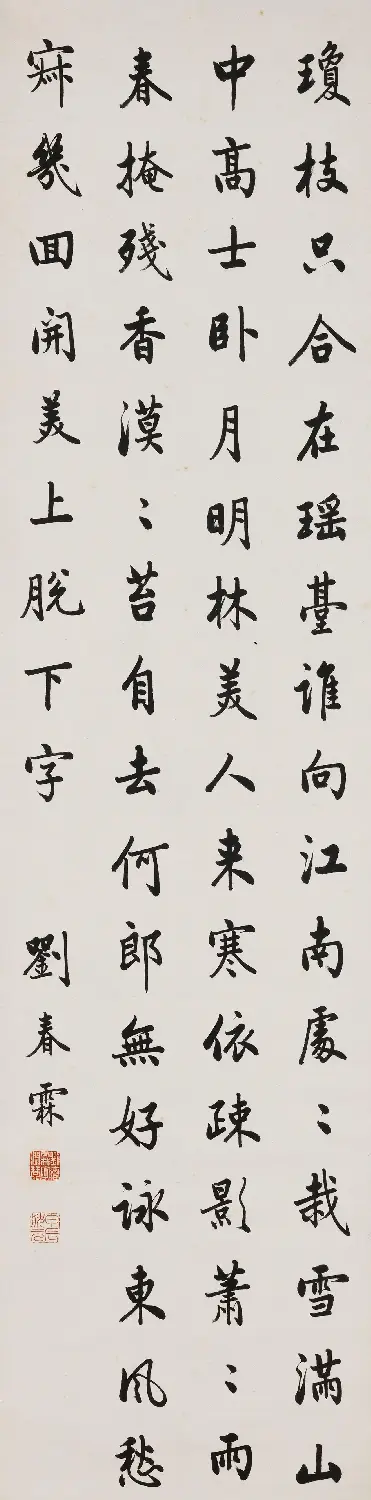 瓊枝只合在瑶臺誰向江南處〻栽雪滿山
中髙士卧月明林美人来寒依疎影蕭〻雨
春掩殘香漠〻苔自去何郎無好詠東風愁
寂幾囬開美上脫下字
劉春霖